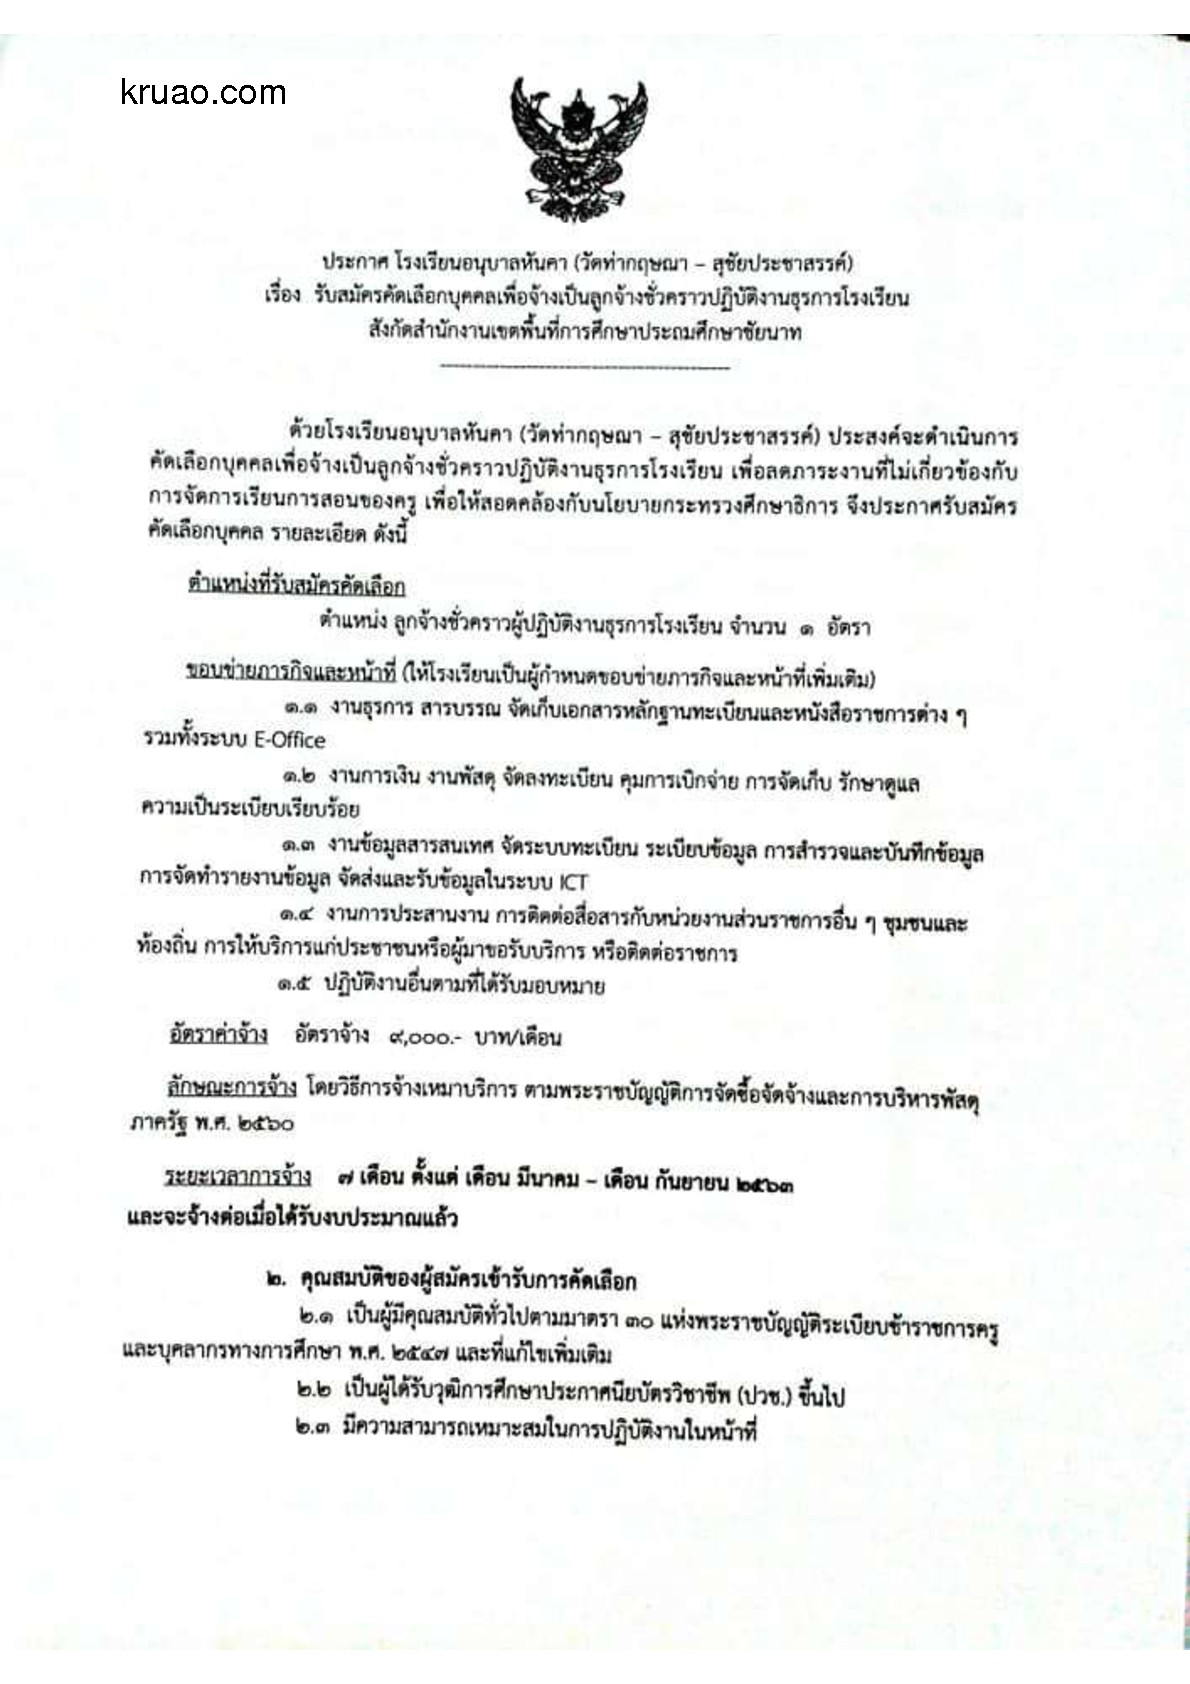 kruao.com
ประกาศ โรงเรียนอนุบาลหันคา (วัดท่ากฤษณา – สุชัยประชาสรรค์)
เรื่อง รับสมัครคัดเลือกบุคคลเพื่อจ้างเป็นลูกจ้างชั่วคราวปฏิบัติงานธุรการโรงเรียน
สังกัดสำนักงานเขตพื้นที่การศึกษาประถมศึกษาชัยนาท
ด้วยโรงเรียนอนุบาลหันคา (วัดท่ากฤษณา – สุชัยประชาสรรค์) ประสงค์จะดำเนินการ
คัดเลือกบุคคลเพื่อจ้างเป็นลูกจ้างชั่วคราวปฏิบัติงานธุรการโรงเรียน เพื่อลดภาระงานที่ไม่เกี่ยวข้องกับ
การจัดการเรียนการสอนของครู เพื่อให้สอดคล้องกับนโยบายกระทรวงศึกษาธิการ จึงประกาศรับสมัคร
คัดเลือกบุคคล รายละเอียด ดังนี้
ตำแหน่งที่รับสมัครคัดเลือก
ตำแหน่ง ลูกจ้างชั่วคราวผู้ปฏิบัติงานธุรการโรงเรียน จำนวน ๑ อัตรา
ขอบข่ายภารกิจและหน้าที่ (ให้โรงเรียนเป็นผู้กำหนดขอบข่ายภารกิจและหน้าที่เพิ่มเติม)
๑.๑ งานธุรการ สารบรรณ จัดเก็บเอกสารหลักฐานทะเบียนและหนังสือราชการต่าง ๆ
รวมทั้งระบบ E-Office
๑.๒ งานการเงิน งานพัสดุ จัดลงทะเบียน คุมการเบิกจ่าย การจัดเก็บ รักษาดูแล
ความเป็นระเบียบเรียบร้อย
๑.๓ งานข้อมูลสารสนเทศ จัดระบบทะเบียน ระเบียบข้อมูล การสำรวจและบันทึกข้อมูล
การจัดทำรายงานข้อมูล จัดส่งและรับข้อมูลในระบบ ICT
๑.๔ งานการประสานงาน การติดต่อสื่อสารกับหน่วยงานส่วนราชการอื่น ๆ ชุมชนและ
ท้องถิ่น การให้บริการแก่ประชาชนหรือผู้มาขอรับบริการ หรือติดต่อราชการ
๑.๕ ปฏิบัติงานอื่นตามที่ได้รับมอบหมาย
อัตราค่าจ้าง อัตราจ้าง ๙,๐๐๐.- บาท/เดือน
ลักษณะการจ้าง โดยวิธีการจ้างเหมาบริการ ตามพระราชบัญญัติการจัดซื้อจัดจ้างและการบริหารพัสดุ
ภาครัฐ พ.ศ. ๒๕๖๐
ระยะเวลาการจ้าง ๗ เดือน ตั้งแต่ เดือน มีนาคม – เดือน กันยายน ๒๕๖๓
และจะจ้างต่อเมื่อได้รับงบประมาณแล้ว
๒. คุณสมบัติของผู้สมัครเข้ารับการคัดเลือก
๒.๑ เป็นผู้มีคุณสมบัติทั่วไปตามมาตรา ๓๐ แห่งพระราชบัญญัติระเบียบข้าราชการครู
และบุคลากรทางการศึกษา พ.ศ. ๒๕๔๗ และที่แก้ไขเพิ่มเติม
๒.๒ เป็นผู้ได้รับวุฒิการศึกษาประกาศนียบัตรวิชาชีพ (ปวช.) ขึ้นไป
๒.๓ มีความสามารถเหมาะสมในการปฏิบัติงานในหน้าที่